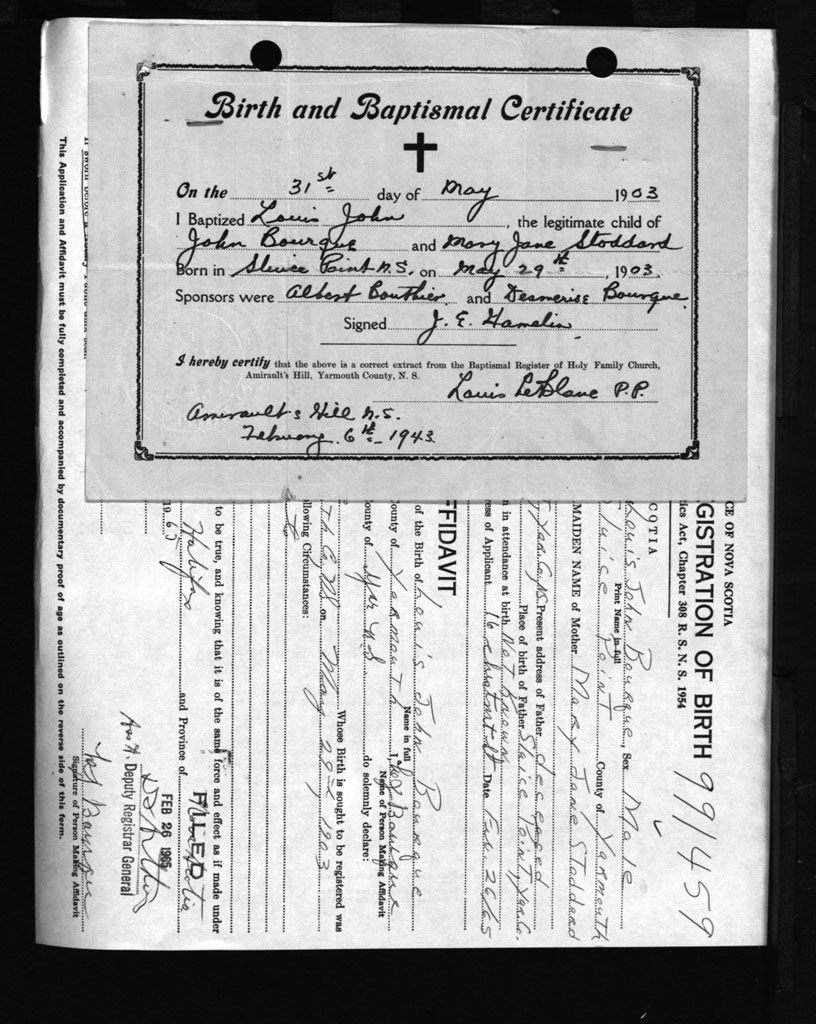 Birth and Baptismal Certificate
On the 31st day of May 1903
I Baptized Louis John, the legitimate child of
John Bourque and Mary Jane Stoddard
Born in Sluice Point N.S. on May 29th, 1903.
Sponsors were Albert Bouthier and Desmerise Bourque.
Signed J. E. Hamelin
I hereby certify that the above is a correct extract from the Baptismal Register of Holy Family Church,
Amirault's Hill, Yarmouth County, N. S.
Louis LeBlanc P.P.
Amirault's Hill N.S.
February 6th 1943
CE OF NOVA SCOTIA
GISTRATION OF BIRTH 991459
tics Act, Chapter 308 R. S. N. S. 1954
COTIA
Louis John Bourque, Sex Male
Print Name in full
Sluice Point County of Yarmouth
MAIDEN NAME of Mother Mary Jane Stoddard
Yar. Co. NS Present address of Father deceased
Place of birth of Father Sluice Point, Yar. Co.
n in attendance at birth not known
ess of Applicant 16 Chestnut St Date Feb. 26/65
FFIDAVIT
of the Birth of Louis John Bourque
Name in full
County of Yarmouth I, Bourque
Name of Person Making Affidavit
County of Yar N.S do solemnly declare:
Whose Birth is sought to be registered was
on May 29th 1903
ollowing Circumstances:
to be true, and knowing that it is of the same force and effect as if made under
Halifax and Province of Nova Scotia
1965
FILED
FEB 26 1965
Deputy Registrar General
Bourque
Signature of Person Making Affidavit
This Application and Affidavit must be fully completed and accompanied by documentary proof of age as outlined on the reverse side of this form.